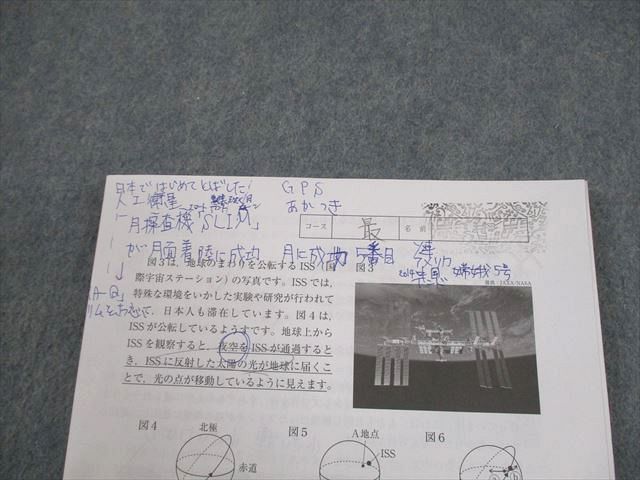 日本ではじめてとばした!
人工衛星
GPS
あかつき
「月探査機「SLIM」
コース 最 名前
が月面着陸に成功 月に成功 5番目
図3は,地球のまわりを公転するISS(国
際宇宙ステーション)の写真です。ISSでは,
特殊な環境をいかした実験や研究が行われて
て,日本人も滞在しています。図4は,
ISSが公転しているようすです。地球上から
ISSを観察すると,夜空をISSが通過すると
き,ISSに反射した太陽の光が地球に届くこ
とで,光の点が移動しているように見えます。
図3
嫦娥5号
提供:JAXA/NASA
図4
北極
赤道
図5
A地点
ISS
図6
a
b